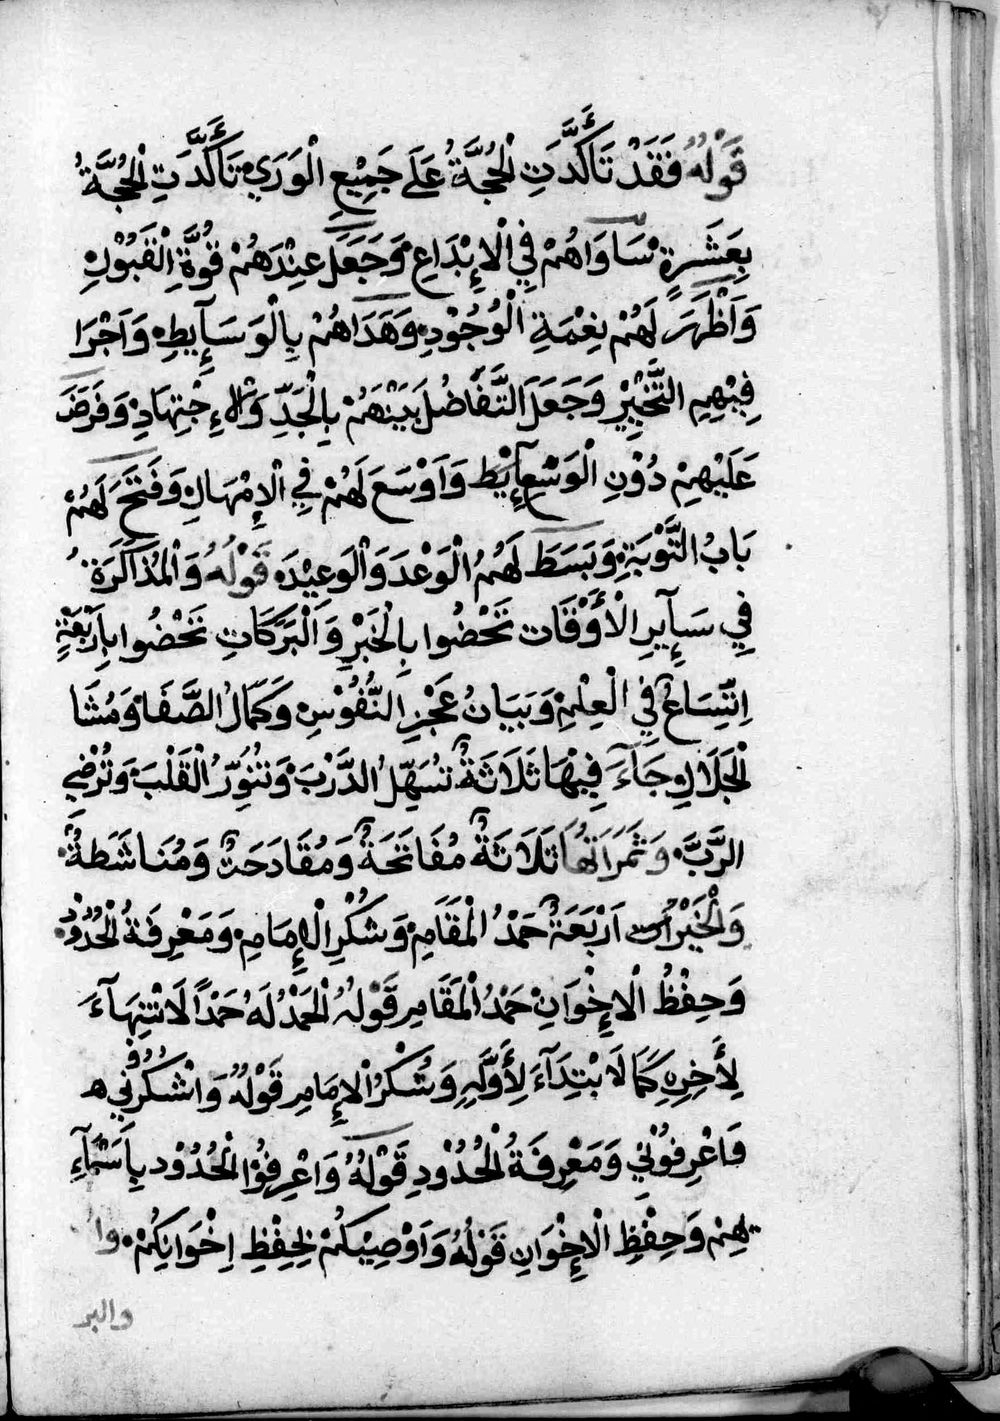 قَوْلُهُ فَقَدْ تَأَكَّدَتِ الْحُجَّةُ عَلَى جَمِيْعِ الْوَرَي تَأَكَّدَتِ الْحُجَّةُ
بِعَشَرَةٍ سَاوَاهُمْ فِي الْإِبْدَاعِ وَجَعَلَ عِنْدَهُمْ قُوَّةِ الْقَبُوْلِ
وَاَظْهَرَ لَهُمْ نِعْمَةِ الْوُجُوْدِ وَهَدَاهُمْ بِالْوَسَآيِطِ وَاَجْرَا
فِيْهِمِ التَّخْيِيْرِ وَجَعَلَ التَّفَاضُلَ بَيْنَهُمْ بِالْجَدِّ وَالْاِجْتِهَادِ وَفَرَضَ
عَلَيْهِمْ دُوْنِ الْوَسْعِ وَاَوْسَعَ لَهُمْ فِي الْاِمْهَالِ وَفَتَحَ لَهُمْ
بَابُ التَّوْبَةِ وَبَسَطَ لَهُمُ الْوَعْدَ وَالْوَعِيْدَ قَوْلُهُ وَالْمُذَاكَرَةُ
فِي سَآيِرِ الْأَوْقَات تَحْضُوا بِالْخَيْرِ وَالْبَرَكَاتِ تَحْضُوا بِاَرْبَعَةٍ
اِتِّسَاعٌ فِي الْعِلْمِ وَبَيَانُ عَجْزِ النُّفُوْسِ وَكَمَالُ الصَّفَا وَمُشَا
الْجَلَالِ وَجَآءَ فِيْهَا ثَلَاثَةٌ تُسَهِّلُ الدَّرْبَ وَتُنَوِّرُ الْقَلْبَ وَتُرْضِي
الرَّبَّ وَثَمَرَاتُهَا ثَلَاثَةٌ مُفَاتَحَةٌ وَمُقَادَحَةٌ وَمُنَاشَطَةٌ
وَالْخَيْرَات اَرْبَعَةٌ حَمْدُ الْمَقَامِ وَشُكْرِ الْاِمَامِ وَمَعْرِفَةُ الْحُدُوْدِ
وَحِفْظُ الْاِخْوَانِ حَمْدُ الْمَقَامِ قَوْلُهُ الْحَمْدُ لَهُ حَمْدًا لَا نْتِهَآءَ
لِأَخِرِهِ كَمَا لَا بْتِدَآءَ لِأَوَّلِهِ وَشُكْرُ الْاِمَامِ قَوْلُهُ وَاشْكُرُوْنِي
فَاعْرِفُوْنِي وَمَعْرِفَةُ الْحُدُوْدِ قَوْلُهُ وَاعْرِفُوْا الْحُدُوْد بِاَسْمَآءِ
هِمْ وَحِفْظِ الْاِخْوَانِ قَوْلُهُ وَاَوْصِيْكُمْ بِحِفْظِ اِخْوَانِكُمْ وا
والبر